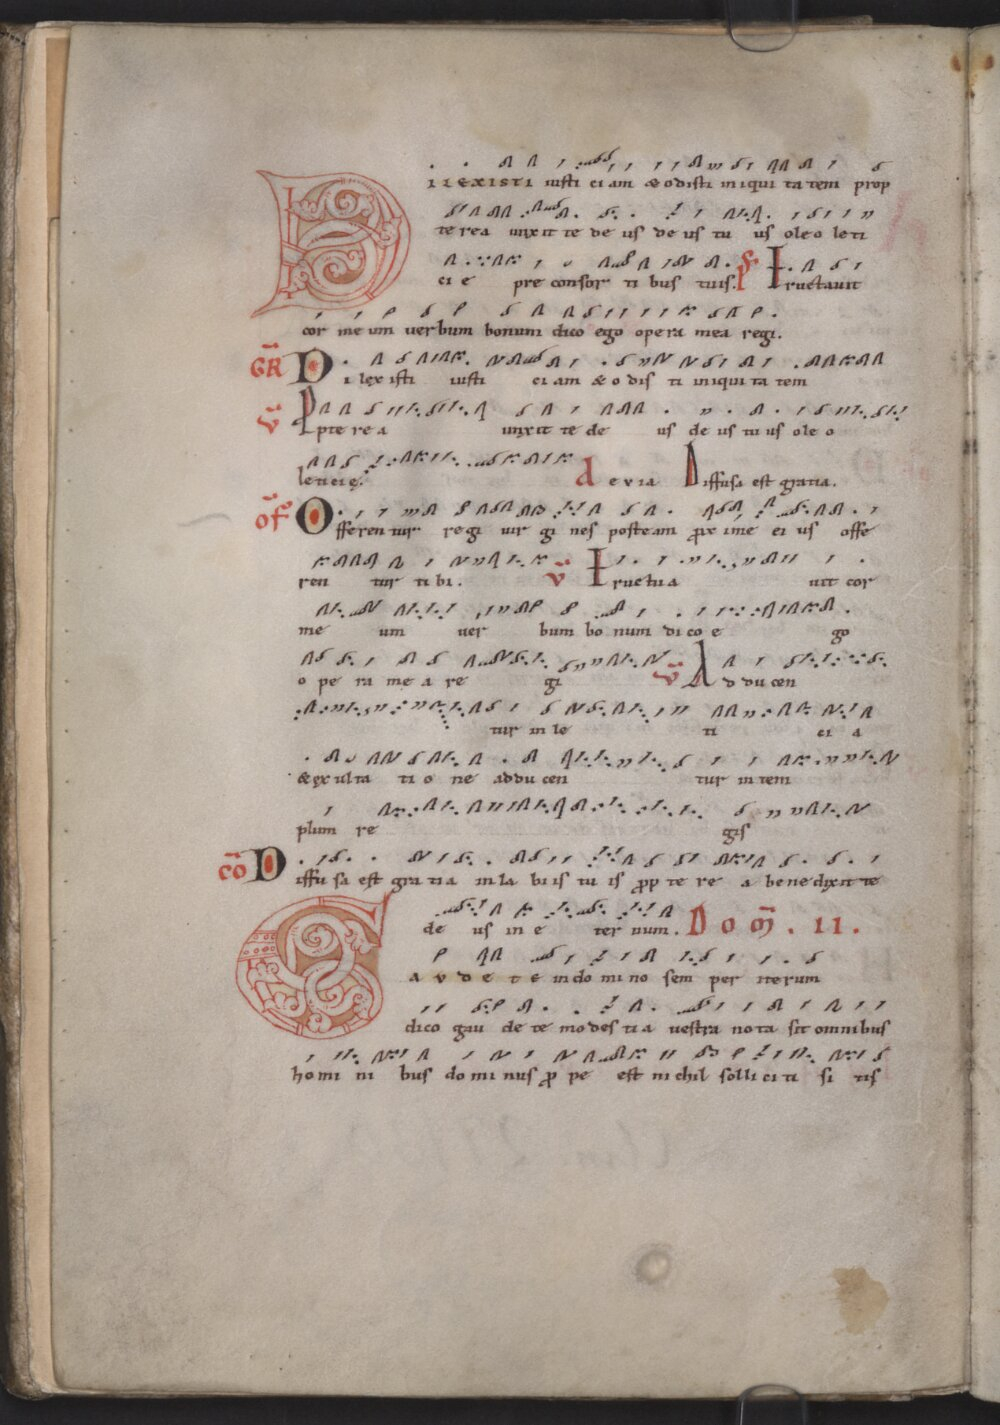 DILEXISTI iusti ci am &odisti iniqui ta tem prop
te rea unxit te de us de us tu us ole o leti
ci e pre consor ti bus tuis. Ps Eructauit
cor me um uerbum bonum dico ego opera mea regi.
GR Dilex isti iusti ci am & o dis ti iniqui ta tem
V Ppte re a unxit te de us de us tu us ole o
leticię. Aevia Diffusa est gratia.
OF Offeren tur regi uir gi nes posteam proxime ei us offe
ren tur ti bi. V Eructua uit cor
me um uer bum bo num di co e go
o pe ra me a re gi V Adducen
tur in le ti ci a
&ex ulta ti o ne adducen tur in tem
plum re gis
CO Diffu sa est gra ti a in la bi is tu is ppp te re a benedixit te
de us in e ter num. Dom. II.
GAVDETE in do mi no sem per iterum
dico gau de te modes ti a uestra no ta sit omnibus
homi ni bus do mi nus p pe est ni chil solli ci ti si tis